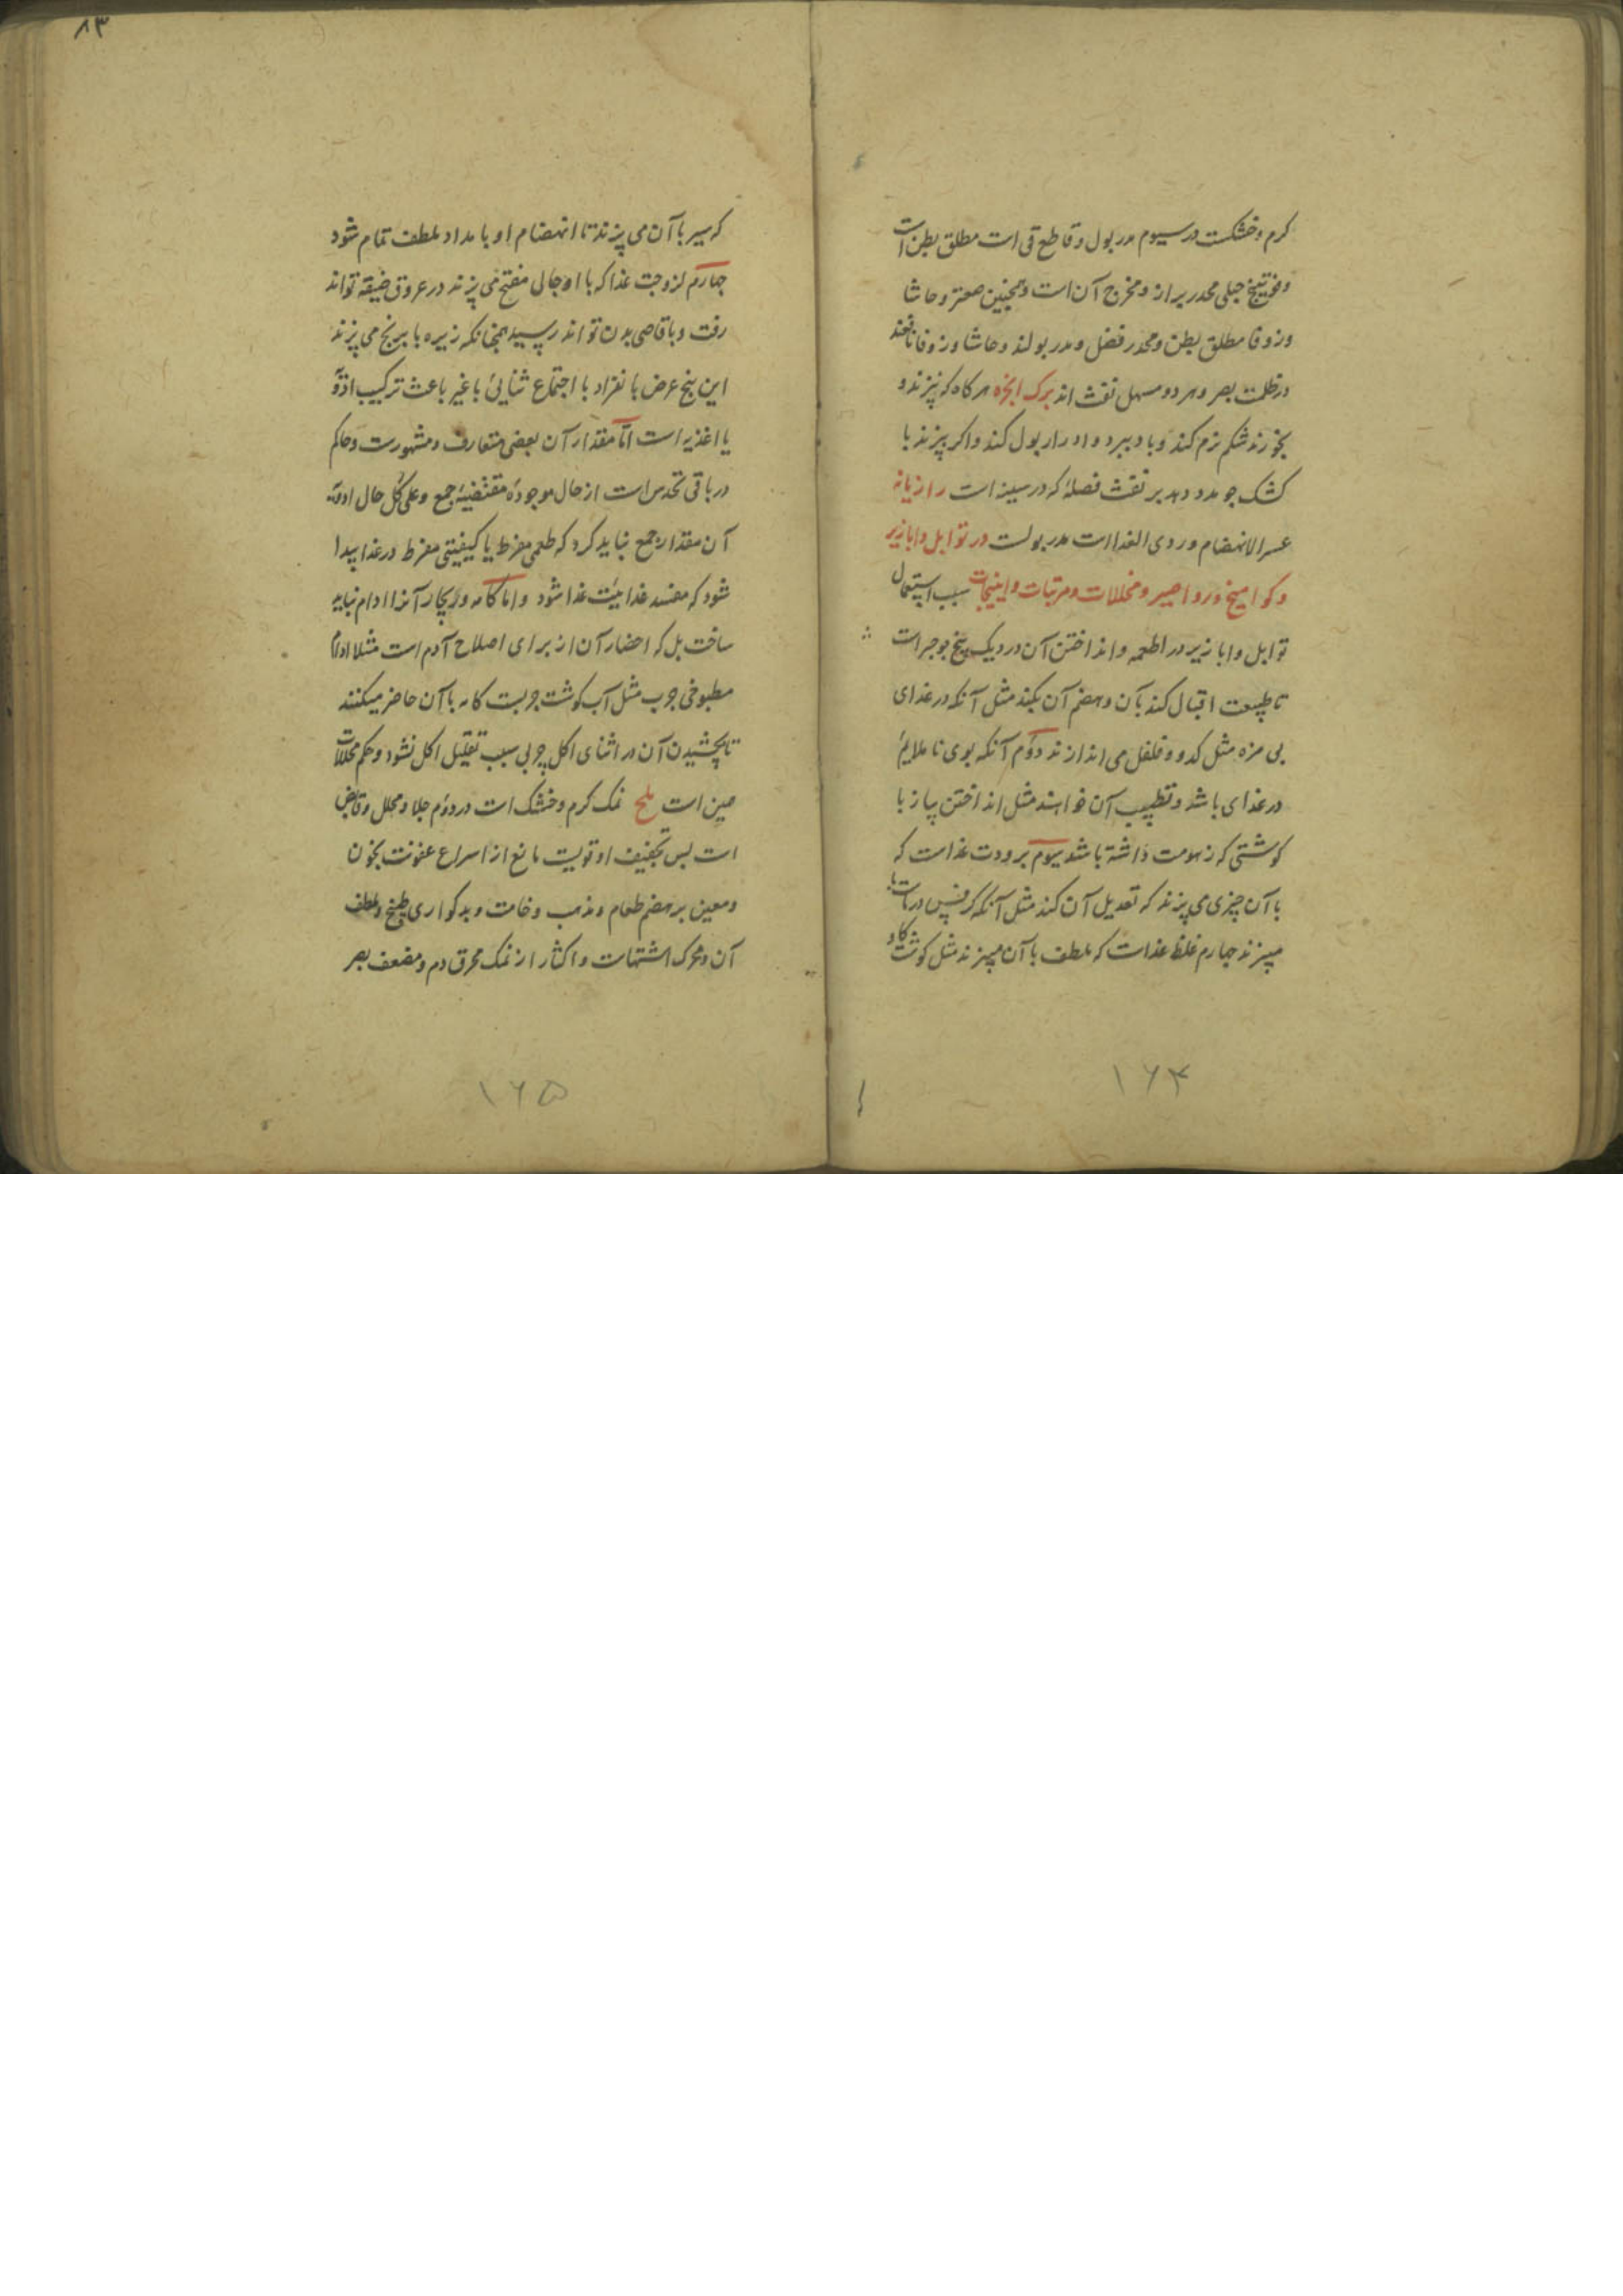 کرم و خشکست در سیوم مدر بول و قاطع قی است مطلق بطن است
و فوتینج جبلی محدر براز و مخرج آن است و همچنین صعتر و حاشا
و زوفا مطلق بطن و محدر فضل و مدر بولند و حاشا و زوفا نافعند
در ظلمت بصر و هر دو مسهل نفث اند برک انجره هر کاه که بپزند و
بخورند شکم نرم کند و باد ببرد و ادرار بول کند و اکر بپزند با
کشک جو مدد دهد بر نفث فضلهٔ که در سینه است رازیانه
عسر الانهضام و ردی الغذا است مدر بولست در توابل و ابازیر
و کوامیخ و رواصیر و مخللات و مربیات و انبجات سبب استعمال
توابل و ابازیر در اطعمه و انداختن آن در دیک پنج بوجر است
تا طبیعت اقبال کند بآن و هضم آن بکند مثل آنکه در غذای
بی مزه مثل کدو و فلفل می اندازند دوم آنکه بوی ناملایم
در غذای باشد و تطییب آن خواهند مثل انداختن پیاز با
کوشتی که زهومت داشته باشد سیوم برودت غذاست که
با آن چیزی می پزند که تعدیل آن کند مثل آنکه کرفس در
میپزند چهارم غلظ غذاست که ملطف با آن میپزند مثل کوشت کاو
۱۶۴
۸۳
که سیر با آن می پزند تا انهضام او با مداد ملطف تمام شود
چهارم لزوجت غذا که با او جالی مفتح می پزند در عروق ضیقه تواند
رفت و باقاصی بدن تواند رسید همچنانکه زیره با برنج می پزند
این پنج عرض بانفراد با اجتماع ثنایی با غیر باعث ترکیب ادویه
یا اغذیه است اما مقدار آن بعضی متعارف و مشهورست و حاکم
در باقی تحدس است از حال موجودهٔ مقتضیهٔ جمع و علی کل حال ادویه
آن مقدار جمع نباید کرد که طعمی مفرط یا کیفیتی مفرط در غذا پیدا
شود که مفسد غذاییت غذا شود و اما کامه و ریچار آنرا ادام نباید
ساخت بل که احضار آن از برای اصلاح آدم است مثلا ادام
مطبوخی چرب مثل آب کوشت چربست کامه با آن حاضر میکنند
تا بچشیدن آن در اثنای اکل چربی سبب تقلیل اکل نشود و حکم مخللات
همین است ملح نمک کرم و خشک است در دوم جلا و محلل و قابض
است پس تجفیف او تویست مانع از اسراع عفونت بخون
و معین بر هضم طعام و مذهب وخامت و بدکواری طبخ و ملطف
آن و محرک اشتهات و اکثار از نمک محرق دم و مضعف بصر
۱۶۵